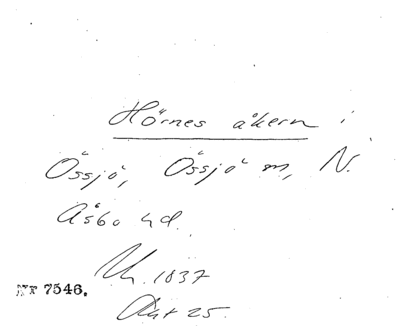 Hörnes åkern i
Össjö, Össjö sn, N.
Åsbo hd.
1837
7546.
Akt 25.